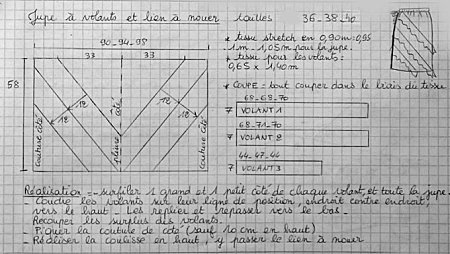 Jupe à volants et lien à nouer tailles 36-38-40
90-94-98
33 33
58
12
18
12
18
couture côté
pliure côté
couture côté
* tissu stretch en 0,90m : 0,95
1m - 1,05m pour la jupe.
* tissu pour les volants :
0,65 x 1,40m
* COUPE = tout couper dans le biais du tissu
68-68-70
7 VOLANT 1
68-71-70
7 VOLANT 2
44-47-44
7 VOLANT 3
Réalisation = - surfiler 1 grand et 1 petit côté de chaque volant, et toute la jupe.
- Coudre les volants sur leur ligne de position, endroit contre endroit,
vers le haut. Les replier et repasser vers le bas.
Recouper les surplus des volants.
- Piquer la couture de côté (sauf 10 cm en haut)
- Réaliser la coulisse en haut, y passer le lien à nouer